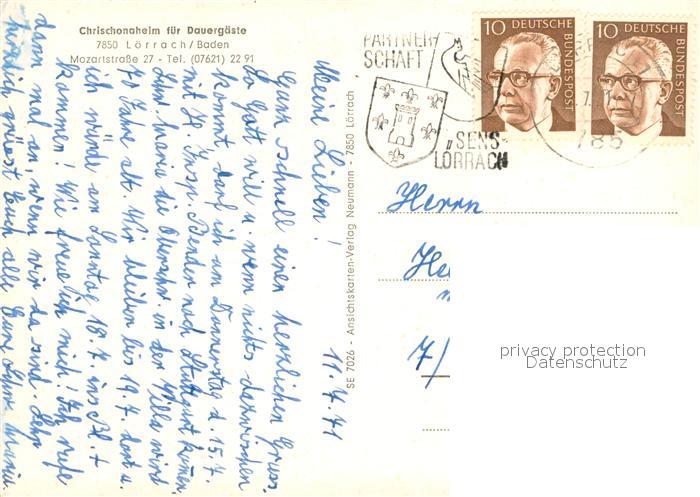 Chrischonaheim für Dauergäste
7850 Lörrach/Baden
Mozartstraße 27 - Tel. (07621) 22 91
PARTNER-
SCHAFT
SENS-
LÖRRACH
785
10 DEUTSCHE
BUNDESPOST
10 DEUTSCHE
BUNDESPOST
SE 7026 - Ansichtskarten-Verlag Neumann - 7850 Lörrach
11.7.71
Meine Lieben!
Ganz schnell einen herzlichen Gruss.
So Gott will u. wenn nichts dazwischen
kommt, darf ich am Donnerstag d. 15.7.
mit H. Insp. Benden nach Stuttgart kommen.
Schw. Maria die Oberschw. in der Villa wird
70 Jahre alt. Wir bleiben bis 19.7. dort u.
ich würde am Sonntag 18.7. ins Bl.
kommen! Wie freue ich mich! Ich rufe
dann mal an, wenn wir da sind. Sehr
herzlich grüsst Euch alle Eure Schw. Maria.
Herrn
7/
privacy protection
Datenschutz